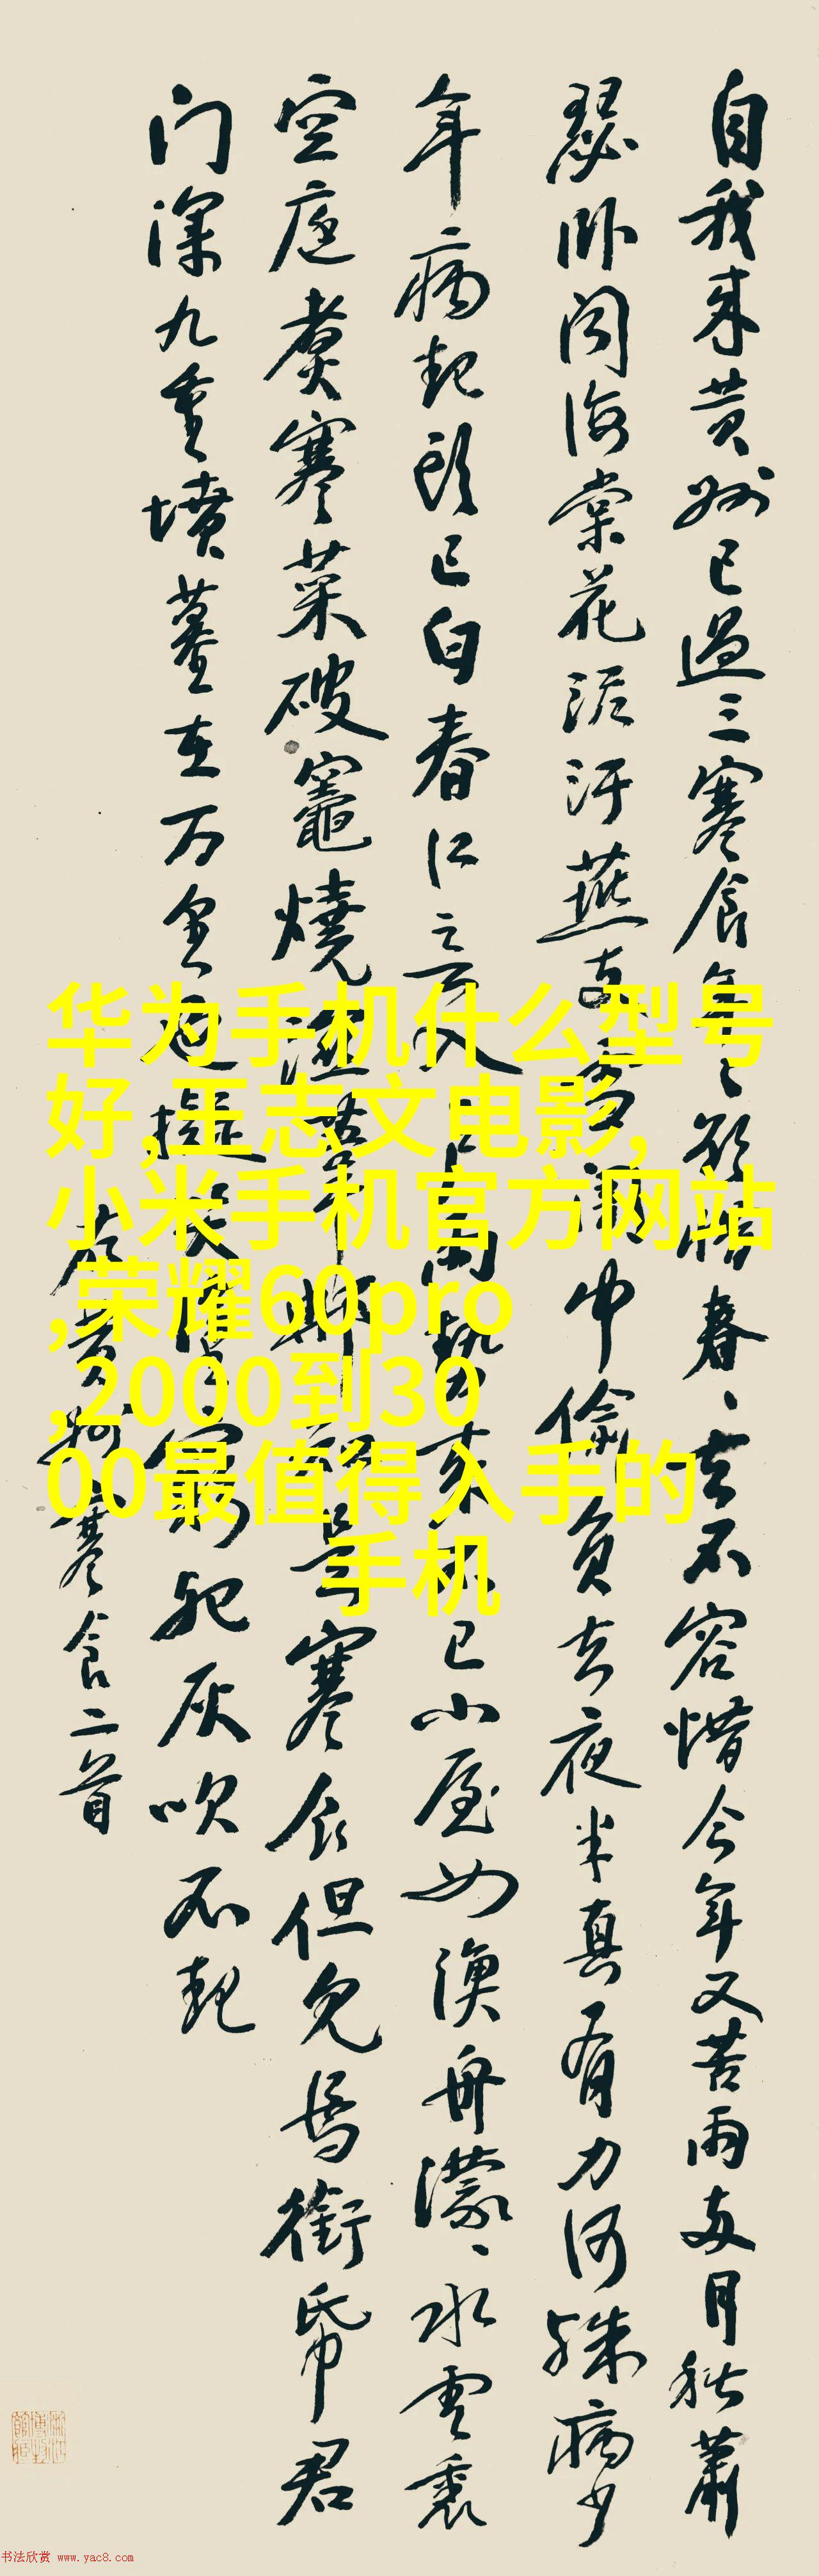 自我来黄州已過三寒食年〻欲惜春〻去不容惜今年又苦雨两月秋蕭
瑟卧闻海棠花泥汙燕支雪中偷負去夜半真有力何殊病少
年病起头已白春江入户雨势来不已小屋如渔舟濛〻水雲裏
空庖煮寒菜破竈燒湿苇那知是寒食但見烏銜帋君
门深九重墳墓在万里也擬哭塗窮死灰吹不起
右黄州寒食二首
华为手机什么型号
好,王志文电影,
小米手机官方网站
,荣耀60pro
,2000到30
00最值得入手的
手机
书法欣赏 www.yac8.com